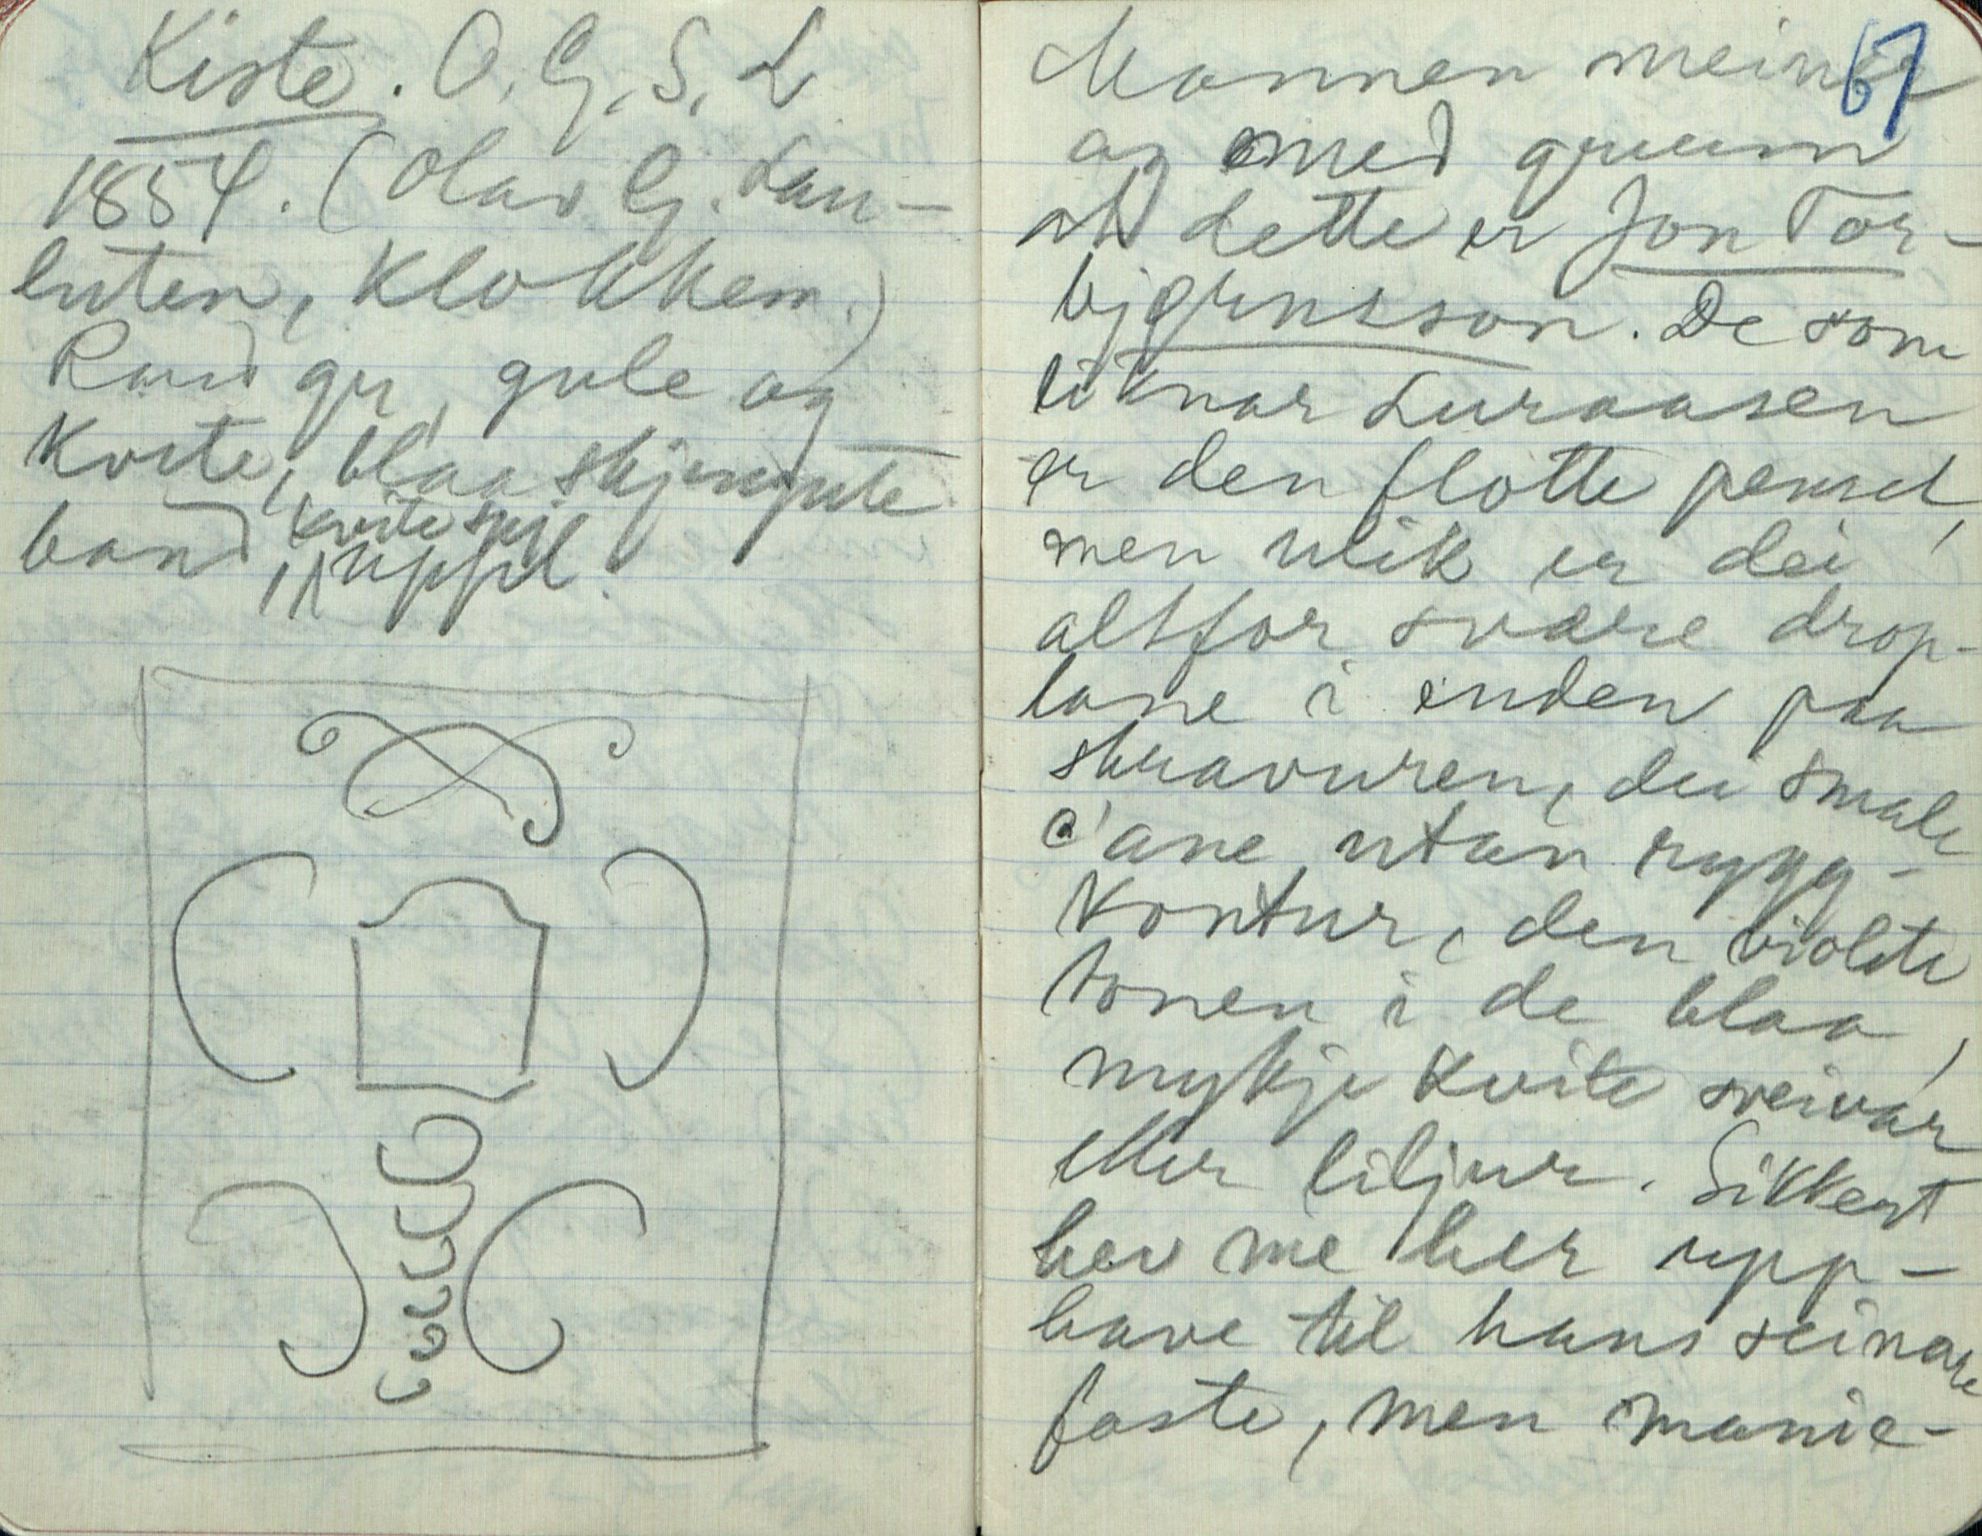 Kiste. O. G. S. L
1854. (Olav G. Lan-
luten, Klokkem.)
Raud gr, gule og
kvite, blaa skjemte
band, kvite
uppfil.
67
Mannen meiner
og med grunn
at dette er Jon Tor-
bjørnsson. De som
liknar Luraasen
er den flotte pensel,
men ulik er dei
altfor svære drop-
lane i enden paa
skravuren, dei smale
c'ane utan rygg-
kontur, den violete
tonen i de blaa,
mykje kvite sveivar
eller liljur. Sikkert
hev me her upp-
have til hans seinare
faste, men manie-